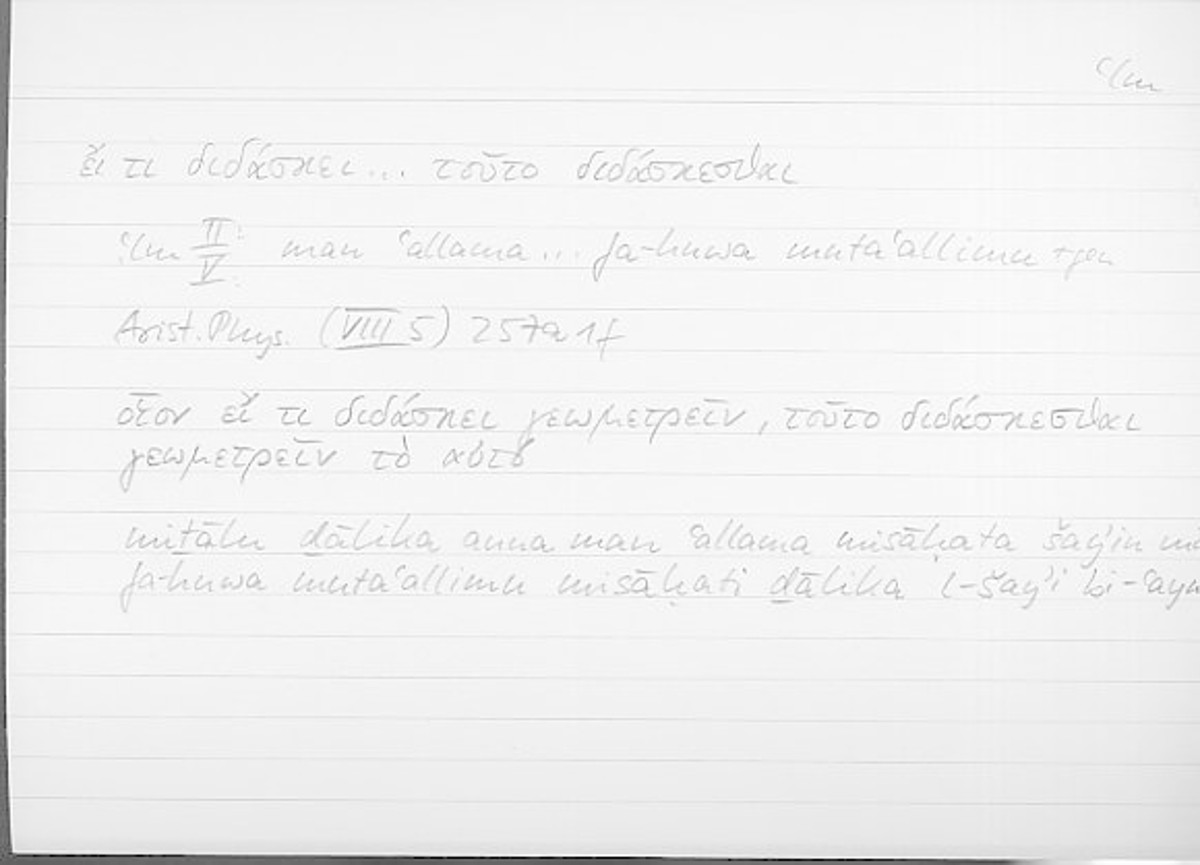 ʿlm
εἴ τι διδάσκει... τοῦτο διδάσκεσθαι
ʿlm II: V: man ʿallama... fa-huwa mutaʿallimu +gen
Arist. Phys. (VIII 5) 257a1f
οἷον εἴ τι διδάσκει γεωμετρεῖν, τοῦτο διδάσκεσθαι
γεωμετρεῖν τὸ αὐτό
miṯālu ḏālika anna man ʿallama misāḥata šayʾin
fa-huwa mutaʿallimu misāḥati ḏālika l-šayʾi